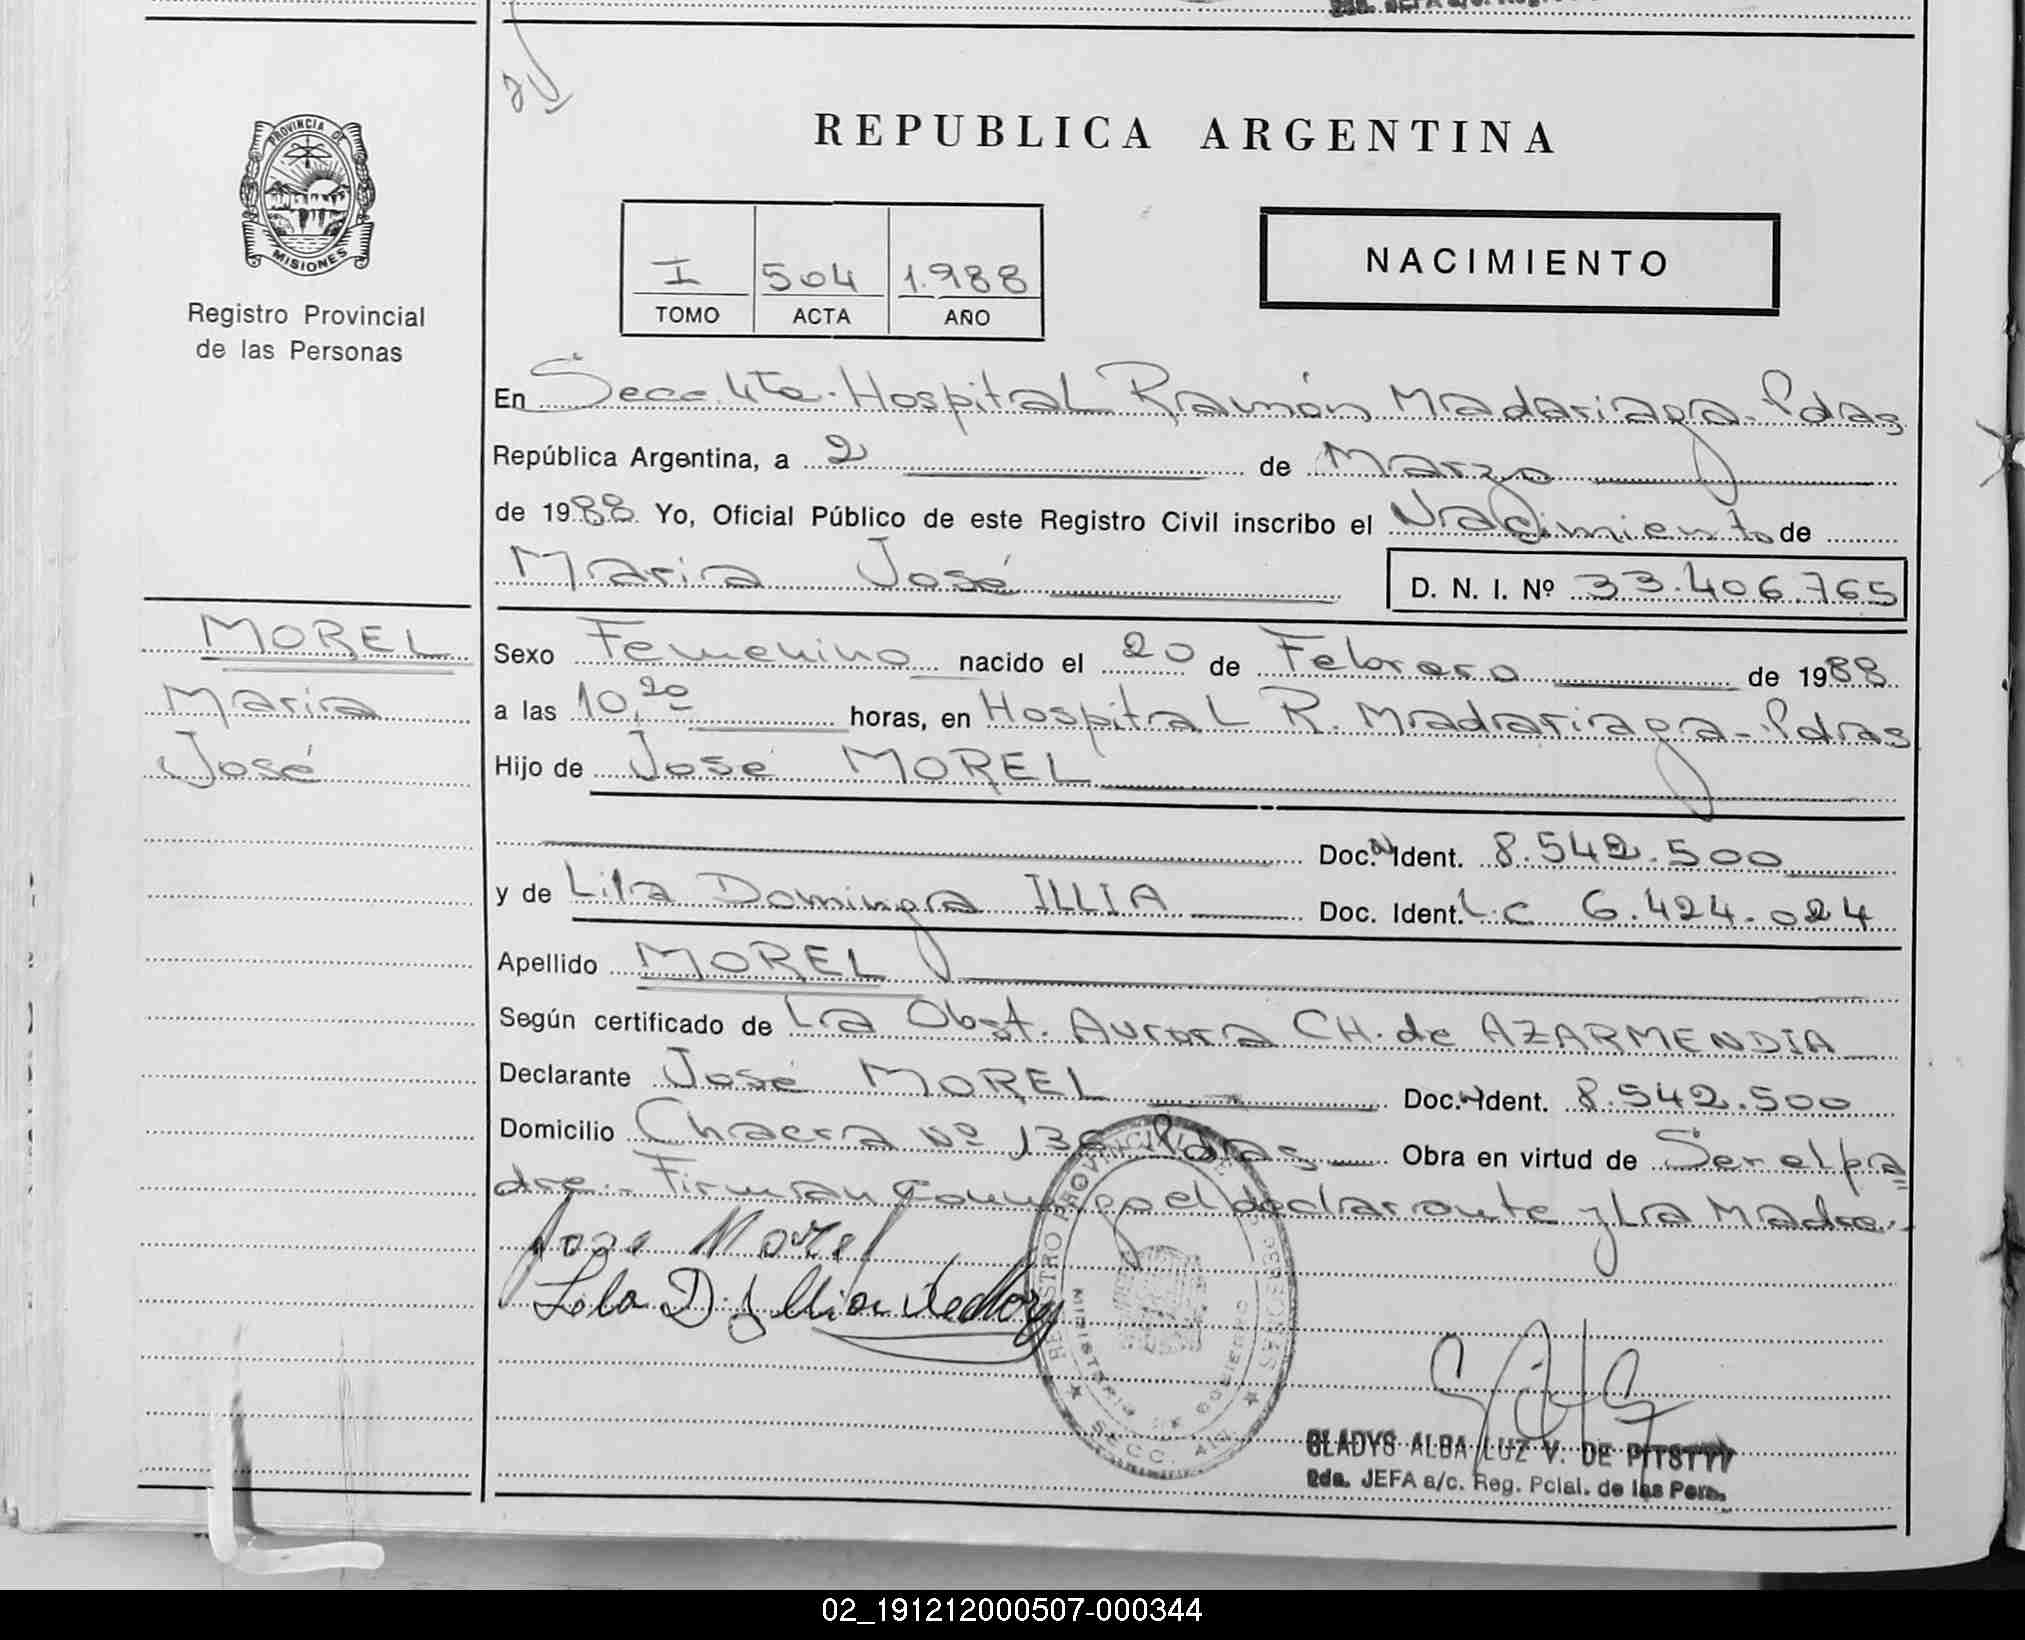 REPUBLICA ARGENTINA
PROVINCIA DE
MISIONES
Registro Provincial
de las Personas
I 504 1.988
TOMO ACTA AÑO
NACIMIENTO
En Secc. 4ta. Hospital Ramón Madariaga - Pdas
República Argentina, a 2 de Marzo
de 1988 Yo, Oficial Público de este Registro Civil inscribo el Nacimiento de
Maria José D. N. I. Nº 33.406.765
MOREL
Maria
José
Sexo Femenino nacido el 20 de Febrero de 1988
a las 10,20 horas, en Hospital R. Madariaga - Pdas
Hijo de José MOREL
Doc. Ident. 8.542.500
y de Lila Dominga ILLIA Doc. Ident. L.C 6.424.024
Apellido MOREL
Según certificado de La Obst. Aurora CH. de AZARMENDIA
Declarante José MOREL Doc. Ident. 8.542.500
Domicilio Chacra Nº 136 Pdas Obra en virtud de Ser el pa
dre.- Firman conmigo el declarante y La Madre.-
Jose Morel
Lila D. Illia
REGISTRO PROVINCIAL DE LAS PERSONAS
MINISTERIO DE GOBIERNO
SECC. 4ta
GLADYS ALBA LUZ V. DE
2da. JEFA a/c. Reg. Pcial. de las Pers.
02_191212000507-000344